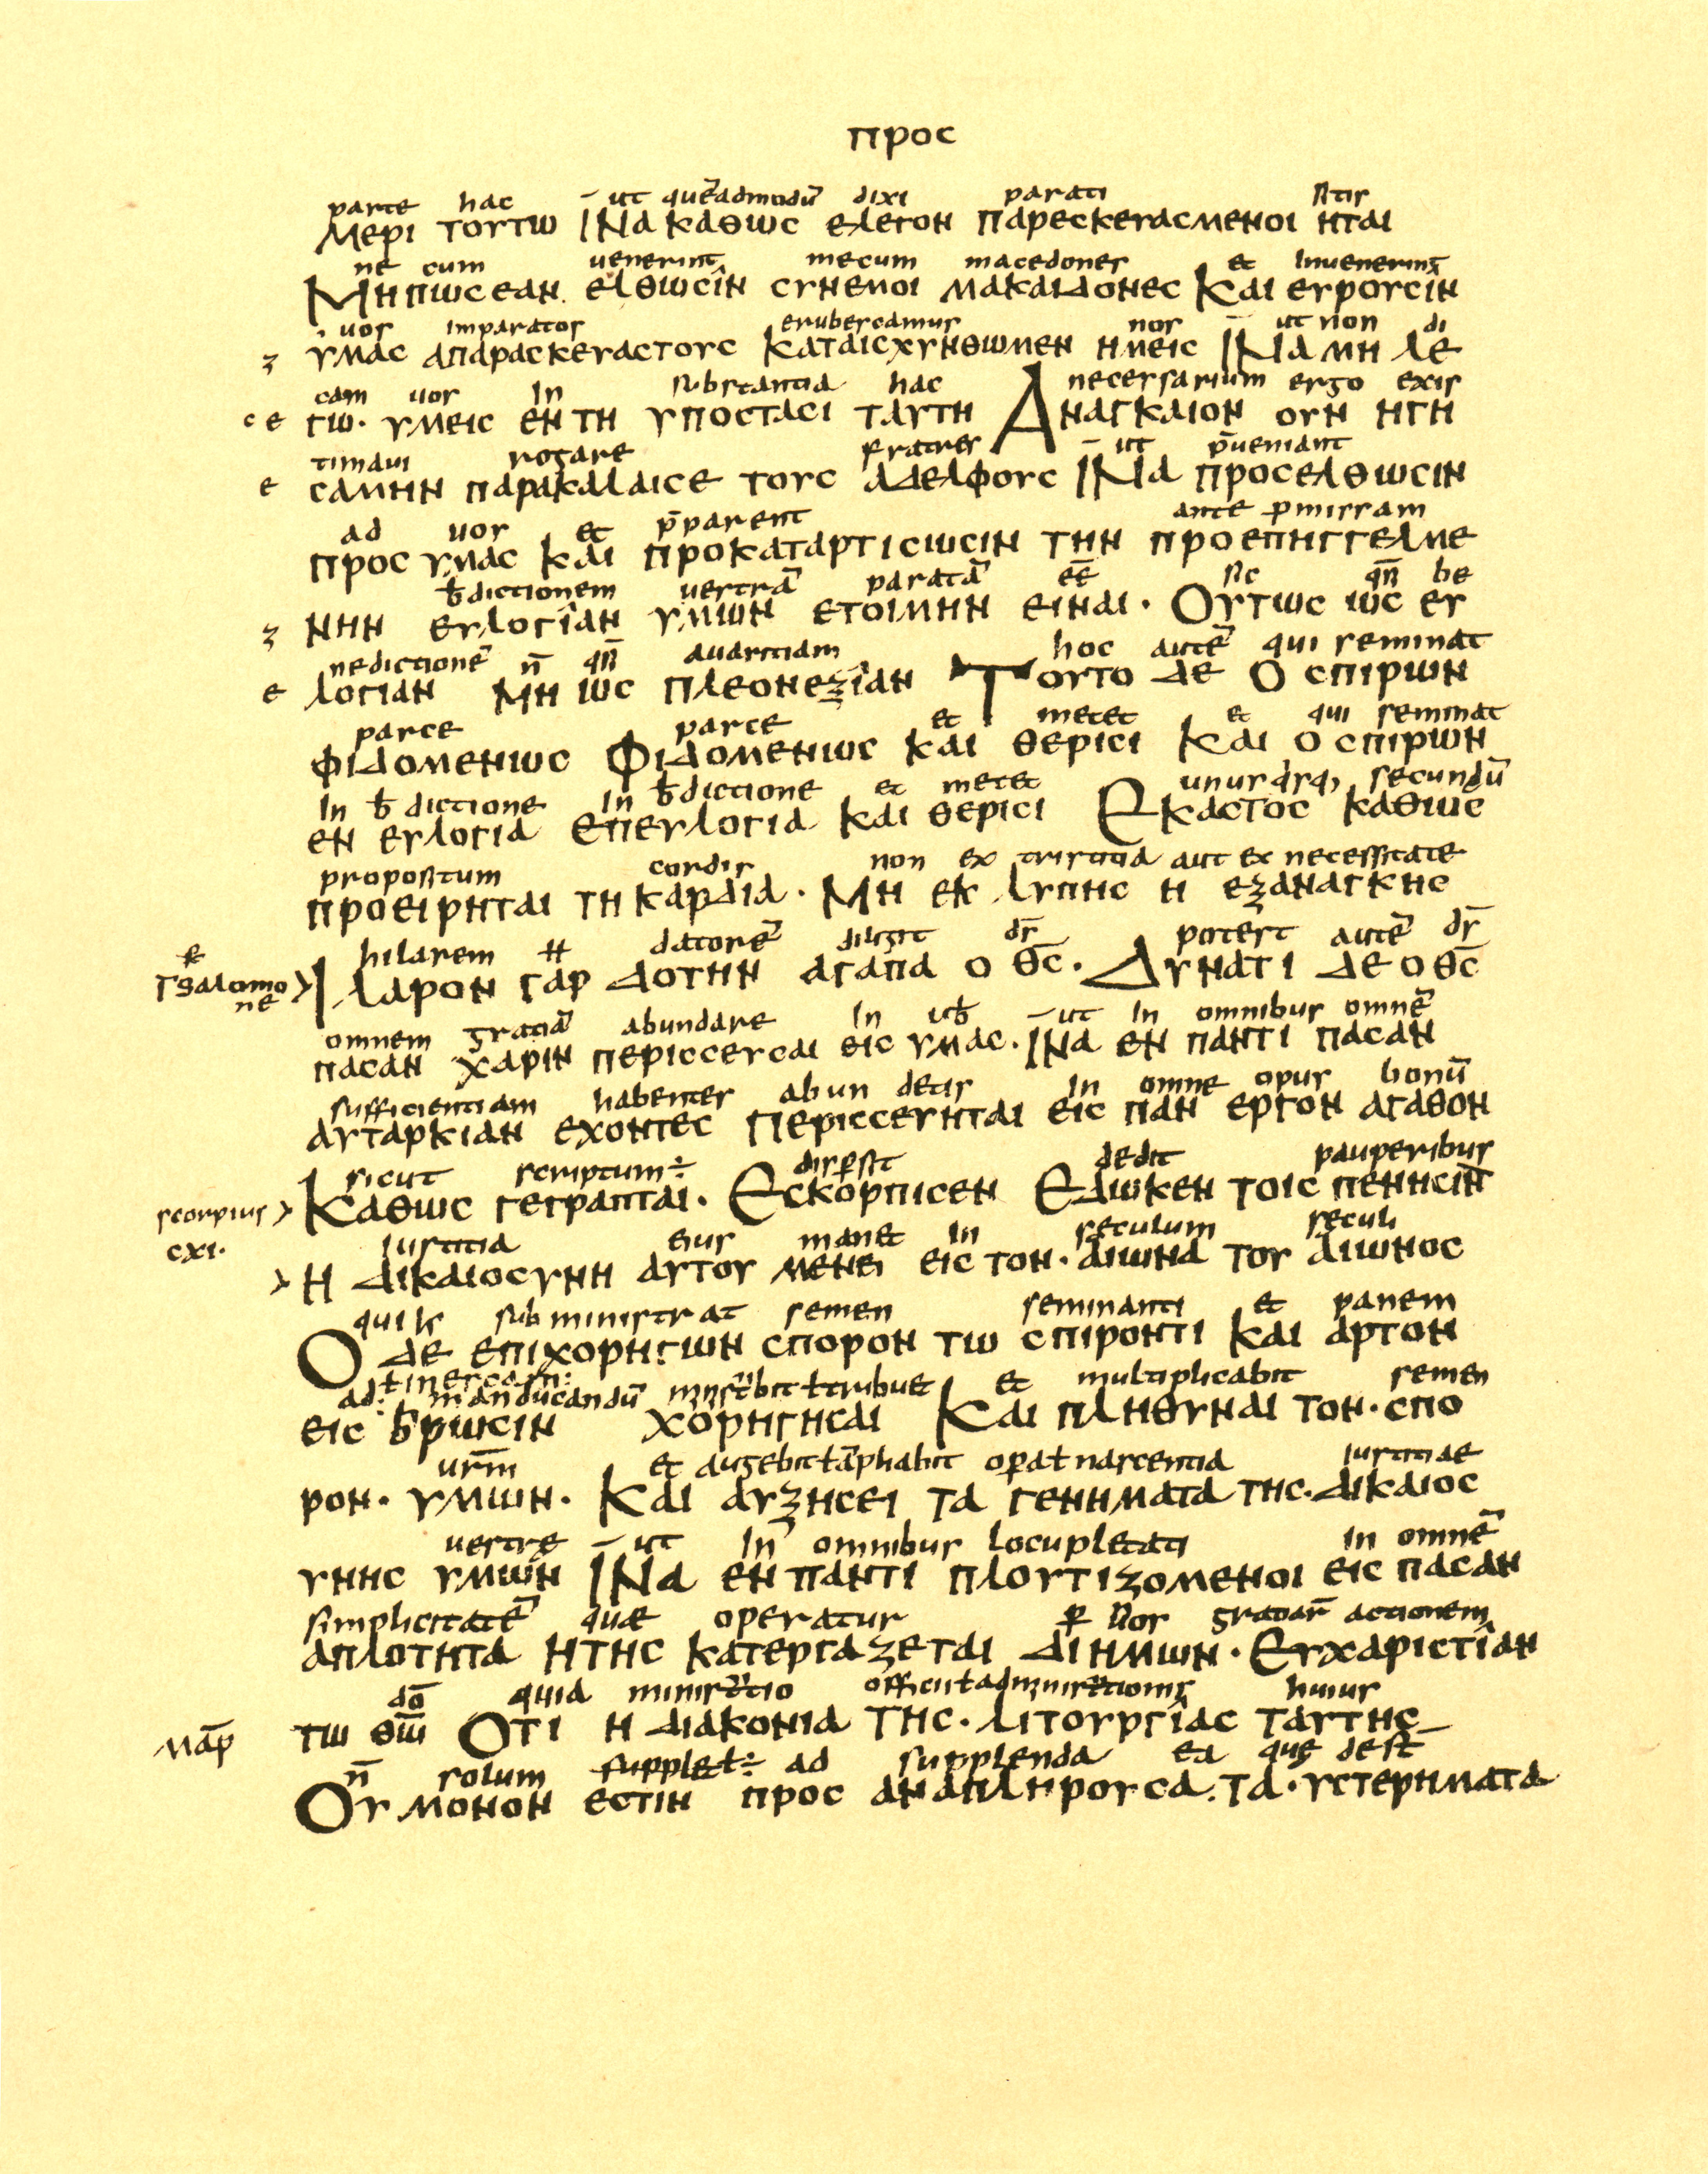 προс
parte hac ut quēadmodū dixi parati sitis
μερι τουτω ινα καθωс ελεγον παρεсκευαсμενοι ηται
ne cum uenerint mecum macedones et inuenerint
Μηπωс εαν ελθωсîν сυνεμοι μακαιδονεс Και ευρουсιν
uos imparatos erubescamus nos ut non di
ϒμαс απαραсκευαсτουс Καταιсχυνθωμεν ημειс Ινα μη λε
cam uos in substantia hac necessarium ergo exis
с ε γω· υμειс εν τη υποсταсι ταυτη Αναγκαιον ουν ηγη
timaui rogare fratres ut p̄ueniant
ε сαμην παρακαλαιсε τουс αδελφουс Ινα προсελθωсιν
ad uos et p̄parent ante pmissam
προс υμαс και προκαταρτιсωсιν την προεπηγγελμε
b̄dictionem uestrā paratā eē sic qn̄ be
ζ νην ευλογîαν υμων ετοιμην ειναι· Ουτωс ωс ευ
nedictionē n̄ qn̄ auaritiam hoc autē qui seminat
ε λογιαν Μη ωс πλεονεξîαν Τουτο δε Ο сπιρων
parce parce et metet et qui seminat
φιδομενωс Φιδομενωс και θεριсι Και ο сπιρων
in b̄dictione in b̄dictione et metet unusqisq, secundū
εν ευλογια επευλογια και θεριсι Εκαсτοс καθωс
propositum cordis non ex tristitia aut ex necessitate
προειρηται τη καρδια· Μη εκ λυπηс η εξαναγκηс
hilarem datorē diligit ds̄ potest autē ds̄
salomo
ne Ιλαρον γαρ δοτην αγαπα ο θс̄· Δυνατι δε ο θс̄
omnem gratiā abundare in uob̄ ut in omnibus omnē
παсαν χαριν περιссευсαι ειс υμαс· Ινα εν παντι παсαν
sufficientiam habentes abun detis in omne opus bonū
αυταρκιαν εχοντεс Περιссευηται ειс παν εργον αγαθον
sicut scriptum÷ dispsit dedit pauperibus
scorpius Καθωс γεγραπται· Εсκορπιсεν Εδωκεν τοιс πενηсιν
cxi·
iustitia eius manet in seculum seculi
Η δικαιοсυνη αυτου μενει ειс τον· αιωνα του αιωνοс
qui sub ministrat semen seminanti et panem
Ο δε επιχορηγων сπορον τω сπιροντι και αρτον
ad manducandū et multiplicabit semen
ειс βρωсιν χορηγηсαι Και πληθυναι τον· сπο
urm̄ et augebit ł āplificabit opa ł nascentia iustitiae
ρον· υμων· Και αυξηсει τα γενηματα τηс· δικαιοс
uestre ut in omnibus locupletati in omnē
υνηс υμων Ινα εν παντι πλουτιζομενοι ειс παсαν
simplicitatē quae operatur p nos gratiar̄ actionem
απλοτητα ητηс κατεργαζεται δι ημων· Ευχαριсτîαν
dō quia ministratio officii ł administrationis huius
μαρ̄ τω θω̄ Οτι η διακονια τηс· λιτουργîαс ταυτηс
n̄ solum supplet÷ ad supplenda ea que dest
Ου μονον εсτιν προс αναπληρουсα· τα· υсτερηματα